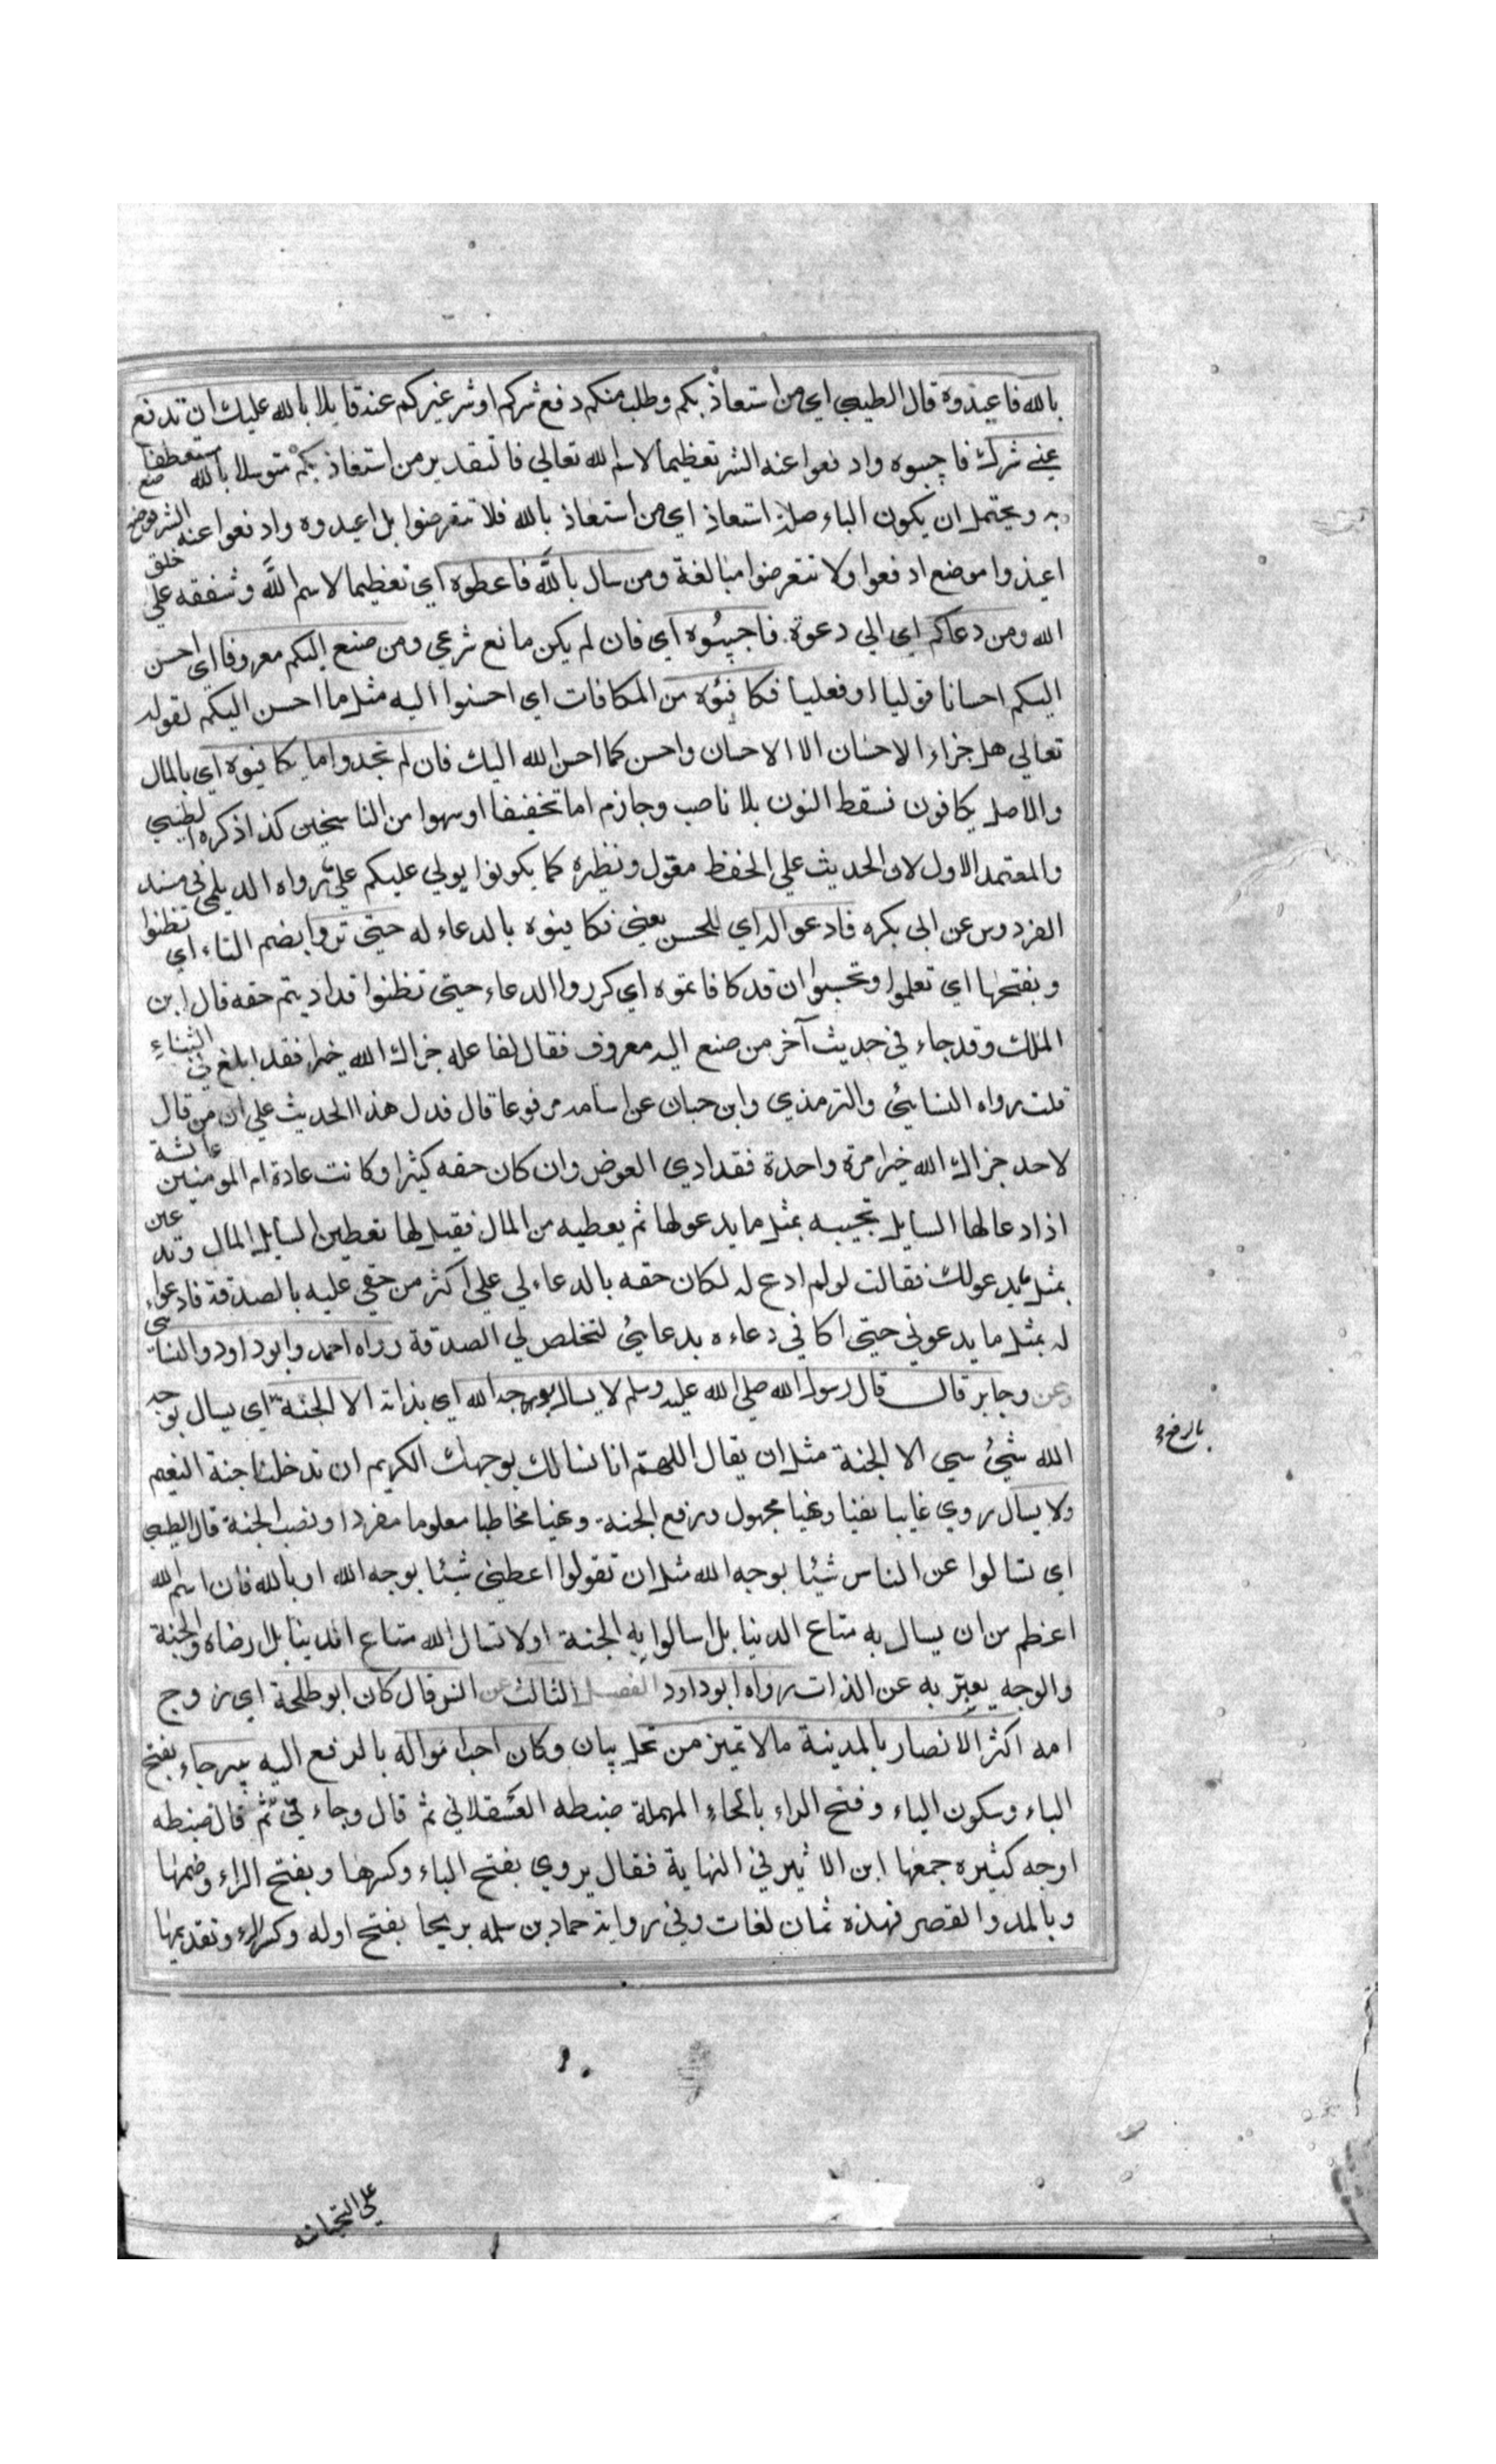 بالله فاعيذوه قال الطيبي اي من استعاذ بكم وطلب منكم دفع شركم او شر غيركم عنه قايلا بالله عليك ان تدفع
عني شرك فاجيبوه وادفعوا عنه الشر تعظيما لاسم الله تعالي فالتقدير من استعاذ بكم متوسلا بالله مستعطفا
به ويحتمل ان يكون الباء صلة استعاذ اي من استعاذ بالله فلا تتعرضوا بل اعيدوه وادفعوا عنه الشر فوضع
اعيذوا موضع ادفعوا ولا تتعرضوا مبالغة ومن سال بالله فاعطوه اي تعظيما لاسم الله وشفقه علي خلق
الله ومن دعاكم اي الي دعوة فاجيبوه اي فان لم يكن مانع شرعي ومن صنع اليكم معروفا اي احسن
اليكم احسانا قوليا او فعليا فكافئوه من المكافات اي احسنوا اليه مثل ما احسن اليكم لقوله
تعالي هل جزاء الاحسان الا الاحسان واحسن كما احسن الله اليك فان لم تجدوا ما يكافيوه اي بالمال
والاصل يكافون فسقط النون بلا ناصب وجازم اما تخفيفا او سهوا من الناسخين كذا ذكره الطيبي
والمعتمد الاول لان الحديث علي الحفظ معول ونظيره كما يكونوا يولي عليكم علي رواه الديلمي في مسند
الفردوس عن ابي بكره فادعوا له اي للمحسن يعني فكافيوه بالدعاء له حتي تروا بضم التاء اي تظنوا
وبفتحها اي تعلموا وتحسبوا ان قد كافاتموه اي كرروا الدعاء حتي تظنوا قد اديتم حقه قال ابن
الملك وقد جاء في حديث آخر من صنع اليه معروف فقال لفاعله جزاك الله خيرا فقد ابلغ في الثناء
قلت رواه النسائي والترمذي وابن حبان عن اسامه مرفوعا قال فدل هذا الحديث علي ان من قال
لاحد جزاك الله خيرا مرة واحدة فقد ادي العوض وان كان حقه كثيرا وكانت عادة ام المومنين عائشة
اذا دعا لها السايل تجيبه بمثل ما يدعو لها ثم يعطيه من المال فقيل لها تعطين السايل المال وتدعين
بمثل ما يدعو لك فقالت لو لم ادع له لكان حقه بالدعاء لي علي اكثر من حقي عليه بالصدقة فادعوا
له بمثل ما يدعوني حتي اكافي دعاءه بدعائي لتخلص لي الصدقة رواه احمد وابو داود والنسائي
وعن وجابر قال قال رسول الله صلي الله عليه وسلم لا يسال بوجه الله اي بذاته الا الجنة اي يسال بوجه
الله شيئ سي الا الجنة مثل ان يقال اللهم انا نسالك بوجهك الكريم ان تدخلنا جنة النعيم
ولا يسال روي غايبا نفيا ونهيا مجهول ورفع الجنة ونهيا مخاطبا معلوما مفردا ونصب الجنة قال الطيبي
اي تسالوا عن الناس شيئا بوجه الله مثل ان تقولوا اعطني شيئا بوجه الله او بالله فان اسم الله
اعظم من ان يسال به متاع الدنيا بل اسالوا به الجنة اولا تسال الله متاع الدنيا بل رضاه والجنة
والوجه يعبر به عن الذات رواه ابو داود الفصل الثالث عن انس قال كان ابو طلحة اي زوج
امه اكثر الانصار بالمدينة مالا تميز من نخل بيان وكان احب امواله بالرفع اليه بيرحاء بفتح
الباء وسكون الياء وفتح الراء بالحاء المهملة ضبطه العسقلاني ثم قال وجاء في ثم قال ضبطه
اوجه كثيره جمعها ابن الاثير في النهاية فقال يروي بفتح الباء وكسرها وبفتح الراء وضمها
وبالمد والقصر فهذه ثمان لغات وفي رواية حماد بن سلمه بريحا بفتح اوله وكسر الراء وتقديمها